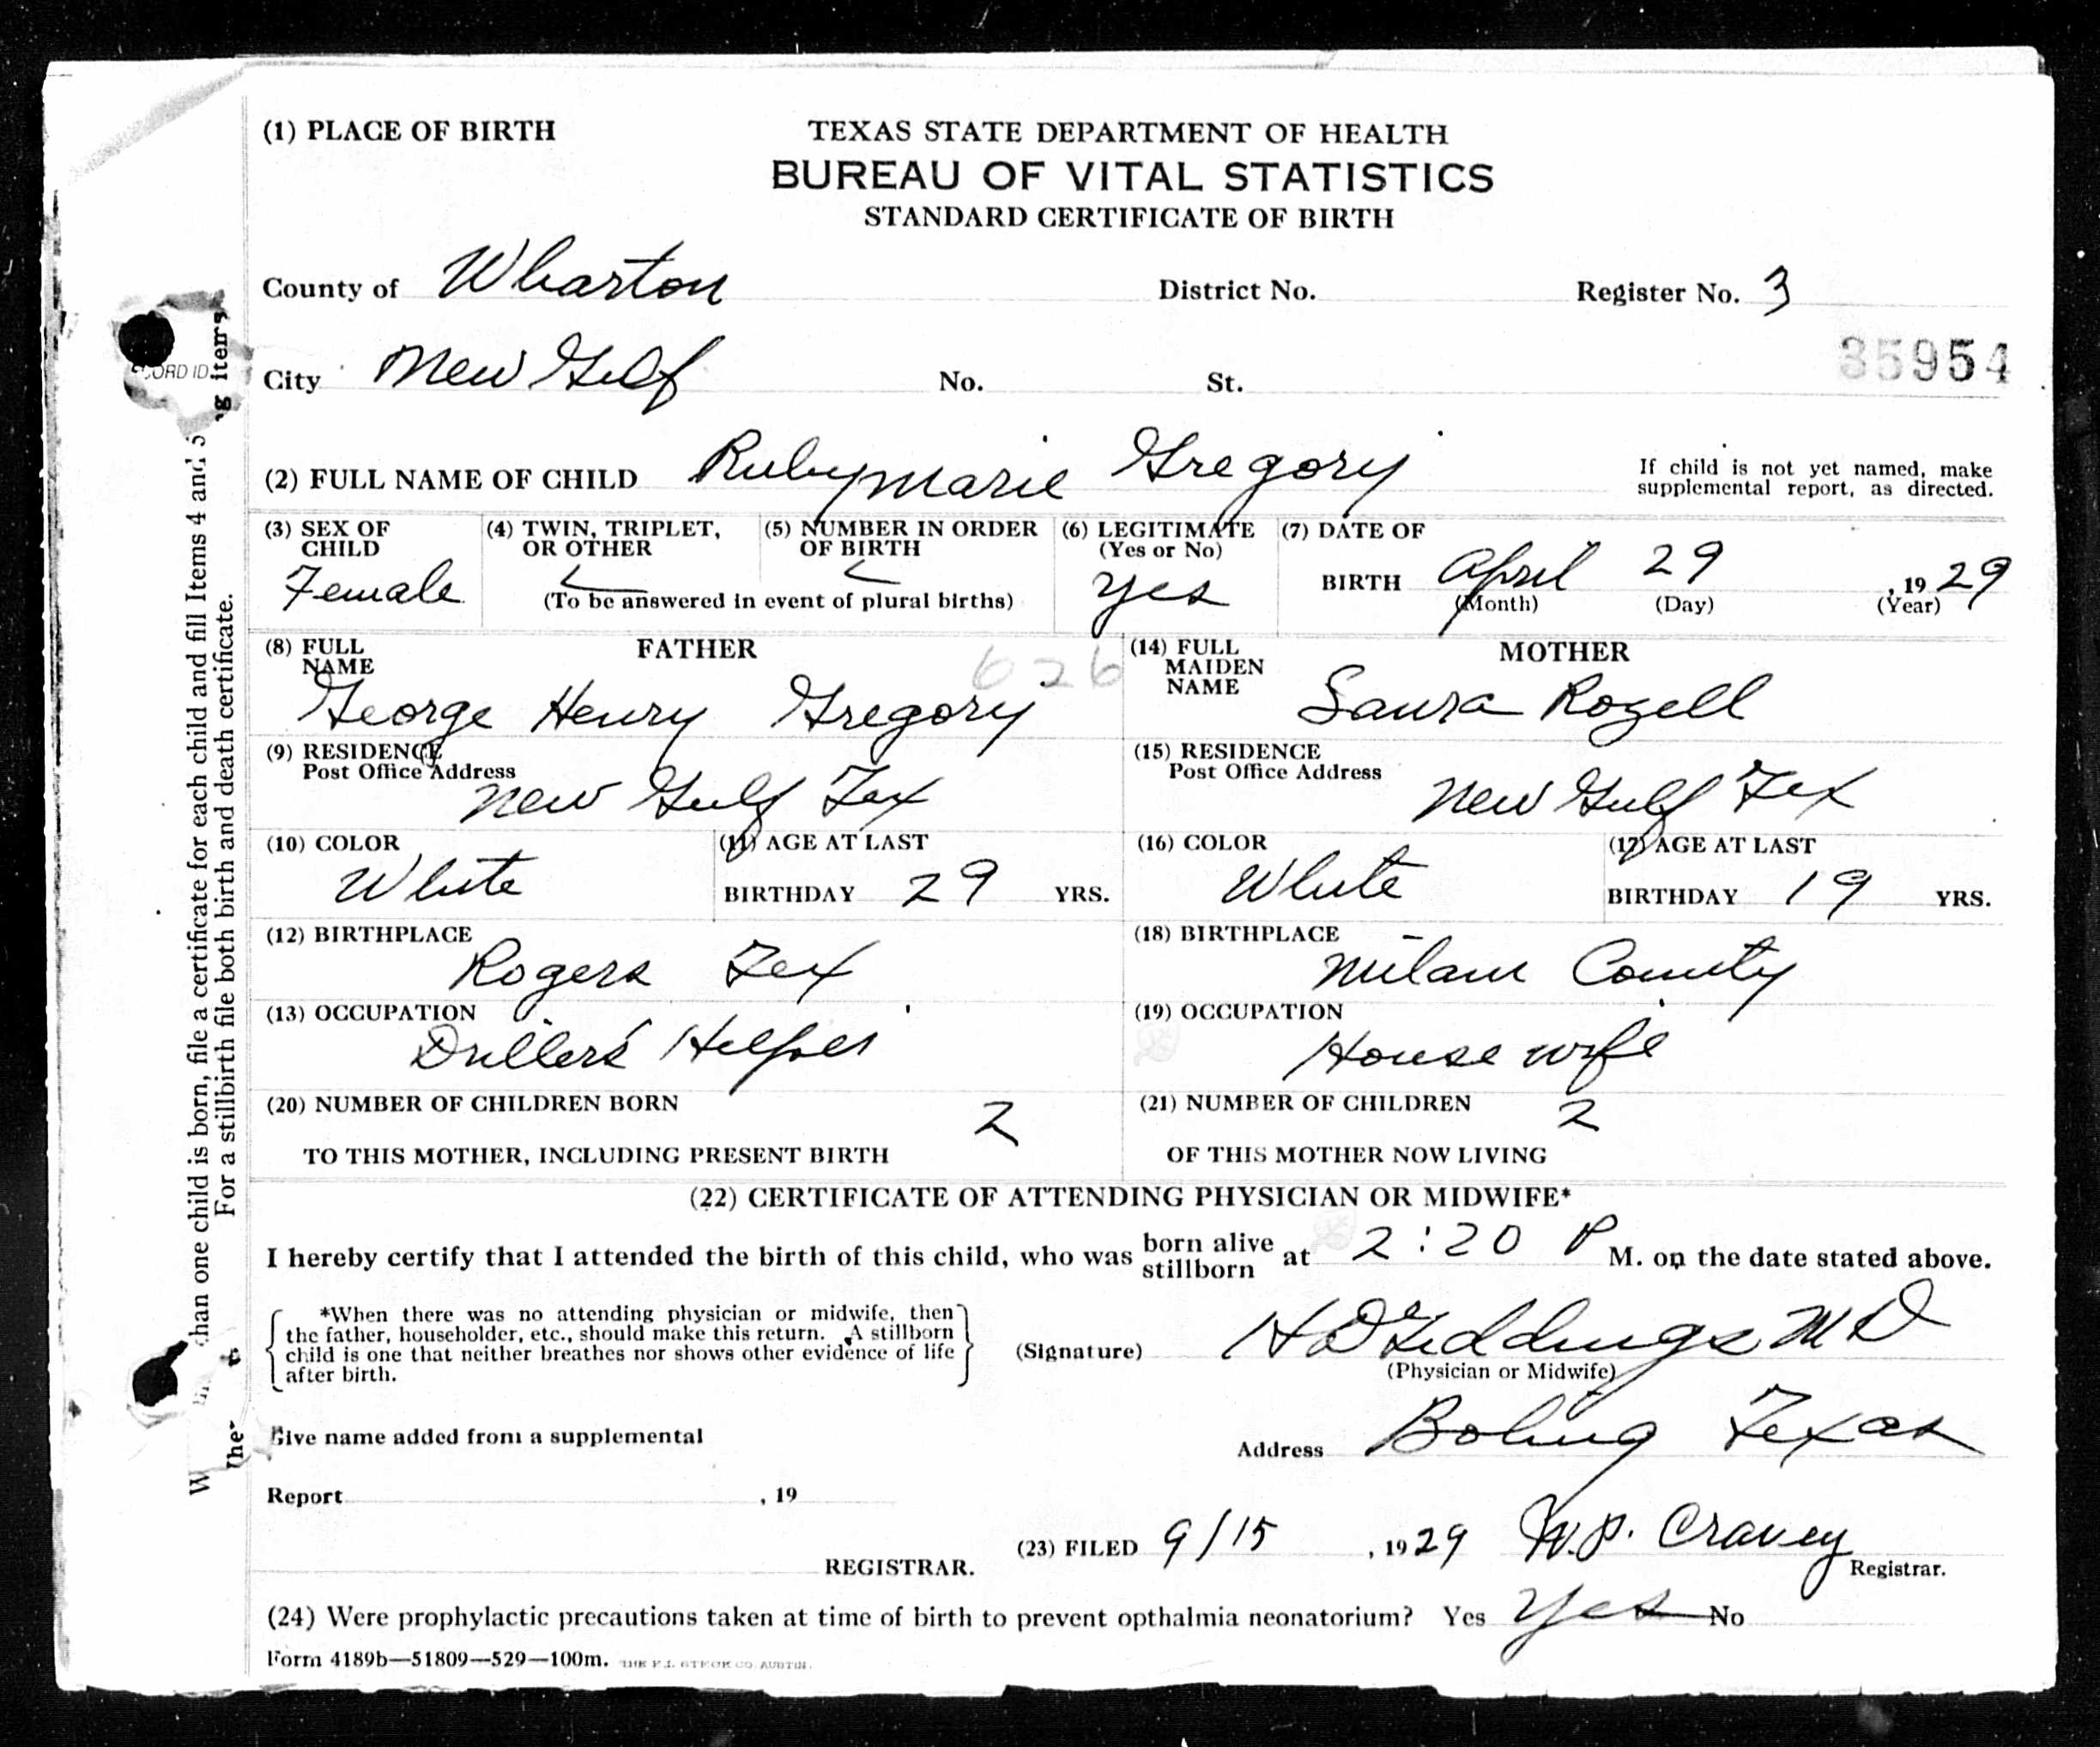 (1) PLACE OF BIRTH
TEXAS STATE DEPARTMENT OF HEALTH
BUREAU OF VITAL STATISTICS
STANDARD CERTIFICATE OF BIRTH
County of Wharton District No. Register No. 3
City New Gulf No. St.
35954
(2) FULL NAME OF CHILD Ruby Marie Gregory
If child is not yet named, make
supplemental report, as directed.
(3) SEX OF CHILD Female
(4) TWIN, TRIPLET, OR OTHER
(5) NUMBER IN ORDER OF BIRTH
(To be answered in event of plural births)
(6) LEGITIMATE (Yes or No) Yes
(7) DATE OF BIRTH April 29, 1929
(Month) (Day) (Year)
FATHER
626
(8) FULL NAME
George Henry Gregory
MOTHER
(14) FULL MAIDEN NAME
Laura Rozell
(9) RESIDENCE
Post Office Address
New Gulf Tex
(15) RESIDENCE
Post Office Address
New Gulf Tex
(10) COLOR
White
(11) AGE AT LAST
BIRTHDAY 29 YRS.
(16) COLOR
White
(17) AGE AT LAST
BIRTHDAY 19 YRS.
(12) BIRTHPLACE
Rogers Tex
(18) BIRTHPLACE
Milam County
(13) OCCUPATION
Driller's Helper
(19) OCCUPATION
House wife
(20) NUMBER OF CHILDREN BORN 2
TO THIS MOTHER, INCLUDING PRESENT BIRTH
(21) NUMBER OF CHILDREN 2
OF THIS MOTHER NOW LIVING
(22) CERTIFICATE OF ATTENDING PHYSICIAN OR MIDWIFE*
I hereby certify that I attended the birth of this child, who was born alive stillborn at 2:20 P M. on the date stated above.
*When there was no attending physician or midwife, then
the father, householder, etc., should make this return. A stillborn
child is one that neither breathes nor shows other evidence of life
after birth.
(Signature) H D Giddings M D
(Physician or Midwife)
Give name added from a supplemental
Address Boling Texas
Report , 19
(23) FILED 9/15, 1929 W.P. Cravey
Registrar.
REGISTRAR.
(24) Were prophylactic precautions taken at time of birth to prevent opthalmia neonatorium? Yes Yes No
Form 4189b—51809—529—100m.
han one child is born, file a certificate for each child and fill Items 4 and 5
For a stillbirth file both birth and death certificate.
g items
ORD ID